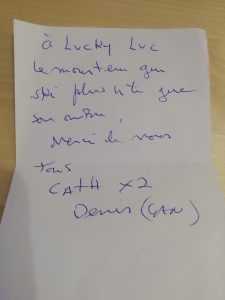 à Lucky Luc
Le moniteur qui
ski plus vite que
son ombre.
Merci de vous
tous
CATH X2
Denis (GAN)